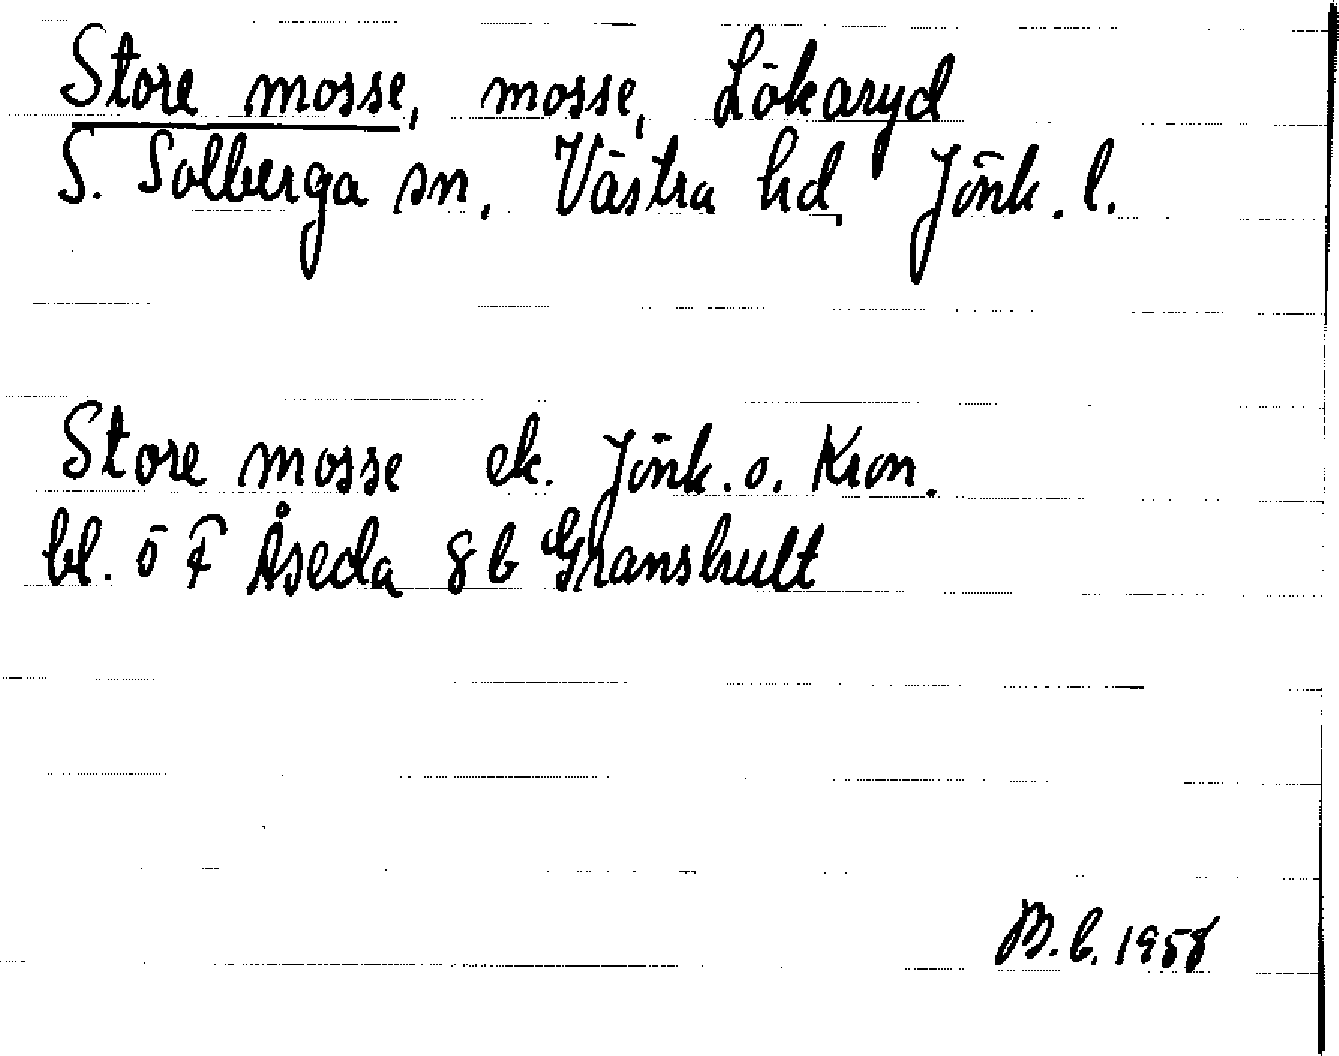 Store mosse, mosse, Lökaryd
S. Solberga sn, Västra hd, Jönk. l.
Store mosse ek. Jönk. o. Kron.
bl. ö F Åseda 8 b Granshult
B.L. 1958